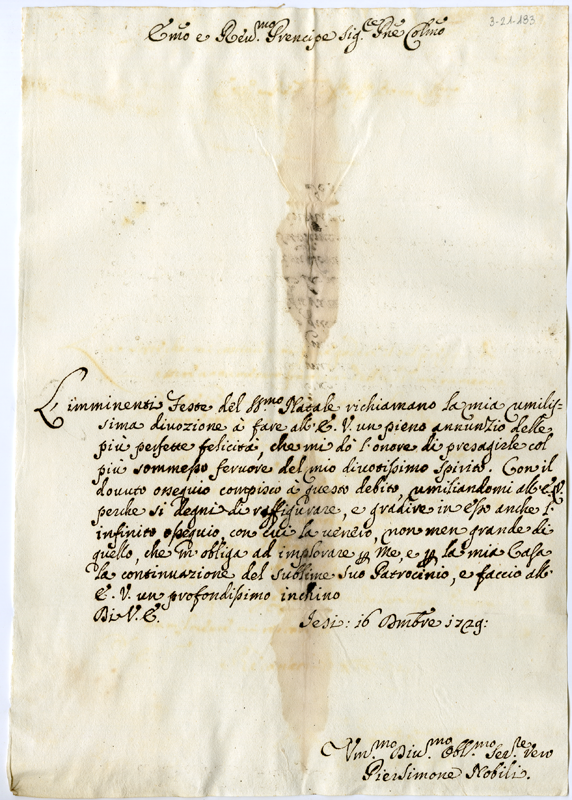 3-21-183
Em̃o e Reu.mo Prencipe Sig.re Prñe Colm̃o
L'imminenti Feste del SS.mo Natale richiamano la mia umilis-
sima diuozione à fare all'E. V. un pieno annunzio delle
più perfette felicità, che mi dò l'onore di presagirle col
più sommesso feruore del mio diuotissimo Spirito. Con il
douuto ossequio compisco à questo debito, umiliandomi all'E. V.
perche si degni di raffigurare, e gradire in esso anche l'
infinito ossequio, con cui la venero, non men grande di
quello, che m'obliga ad implorare ꝑ me, e ꝑ la mia Casa
la continuazione del sublime suo Patrocinio, e faccio all'
E. V. un profondissimo inchino
Di V. E.
Jesi: 16 Dm̃bre 1729:
Vm.mo Diu.mo Obl.mo Ser.re vero
PierSimone Nobili.